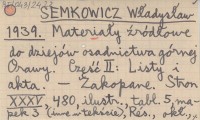 SEMKOWICZ Władysław
1939. Materjały źródłowe
do dziejów osadnictwa górnej
Orawy. Część II: Listy i
akta. — Zakopane. Stron
XXXV, 480, ilustr., tabl. 5, ma-
pek 3 (inne w tekście), Rés., okł.,